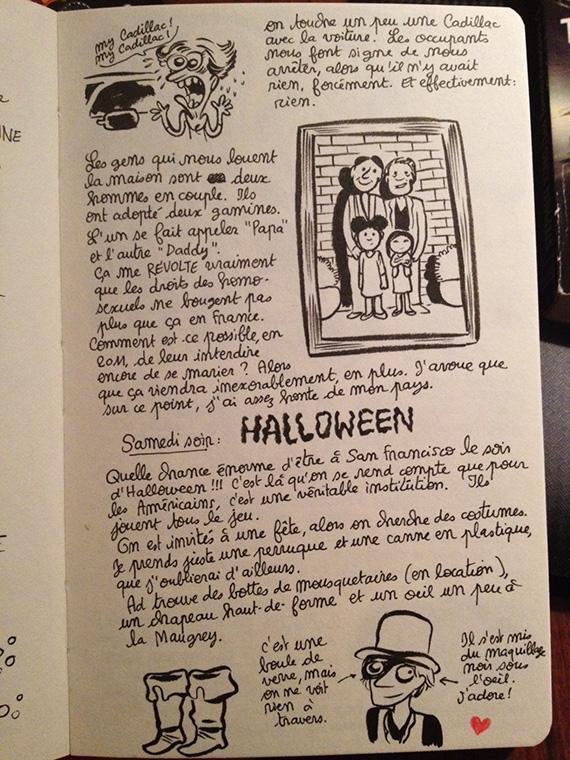 my Cadillac!
my Cadillac!
on touche un peu une Cadillac
avec la voiture! Les occupants
nous font signe de nous
arrêter, alors qu'il n'y avait
rien, forcément. Et effectivement:
rien.
Les gens qui nous louent
la maison sont deux
hommes en couple. Ils
ont adopté deux gamines.
L'un se fait appeler "Papa"
et l'autre "Daddy".
Ça me RÉVOLTE vraiment
que les droits des homo-
sexuels ne bougent pas
plus que ça en France.
Comment est-ce possible, en
2011, de leur interdire
encore de se marier? Alors
que ça viendra inexorablement, en plus. J'avoue que
sur ce point, j'ai assez honte de mon pays.
Samedi soir: HALLOWEEN
Quelle chance énorme d'être à San Francisco le soir
d'Halloween!!! C'est là qu'on se rend compte que pour
les Américains, c'est une véritable institution. Ils
jouent tous le jeu.
On est invités à une fête, alors on cherche des costumes.
Je prends juste une perruque et une canne en plastique,
que j'oublierai d'ailleurs.
Ad trouve des bottes de mousquetaires (en location),
un chapeau haut-de-forme et un oeil un peu à
la Maugrey.
c'est une
boule de
verre, mais
on ne voit
rien à
travers.
Il s'est mis
du maquillage
noir sous
l'oeil.
J'adore!
UNE
E